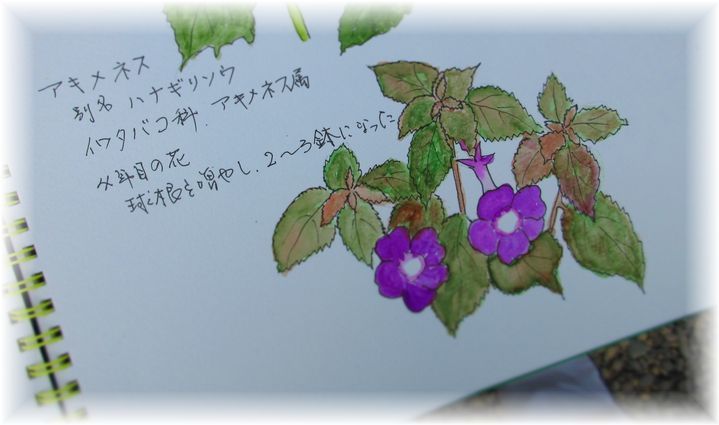 アキメネス
別名 ハナギリソウ
イワタバコ科. アキメネス属
4年目の花
球根を増やし. 2〜3鉢になった